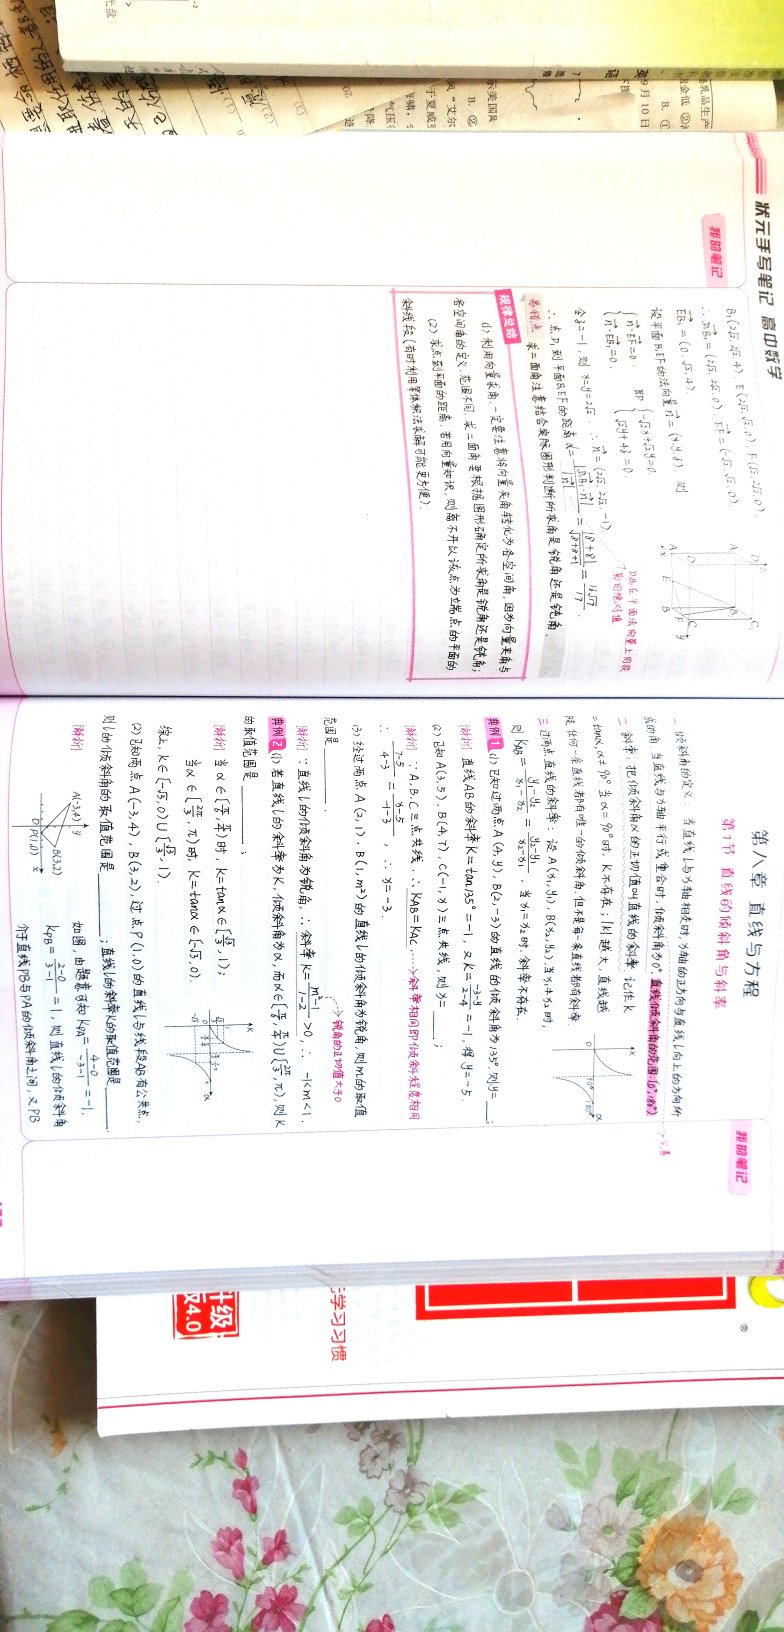 状元手写笔记 高中数学
我的笔记
B₁(2√2,2√2,4), E(2√2,√2,0), F(√2,2√2,0),
∴ D₁B₁=(2√2,2√2,0), EF=(-√2,√2,0),
EB₁=(0,√2,4).
设平面B₁EF的法向量n=(x,y,z), 则
{n·EF=0, 即 {-√2x+√2y=0,
n·EB₁=0, √2y+4z=0.
令z=-1, 则x=y=2√2, ∴n=(2√2,2√2,-1).
∴点D₁到平面B₁EF的距离d=|D₁B₁·n|/|n|=|8+8|/√(8+8+1)=16√17/17.
易错点 求二面角注意结合实际图形判断所求角是锐角还是钝角.
规律总结
(1) 利用向量求角, 一定要注意将向量夹角转化为各空间角, 因为向量夹角与
各空间角的定义、范围不同. 求二面角要根据图形确定所求角是锐角还是钝角;
(2) 求点到平面的距离, 若用向量知识, 则离不开以该点为立端点的平面的
斜线段(有时利用等体积法求解可能更方便).
第八章 直线与方程
第1节 直线的倾斜角与斜率
我的笔记
一 倾斜角的定义: 当直线l与x轴相交时, x轴的正方向与直线l向上的方向所
成的角. 当直线与x轴平行或重合时, 倾斜角为0°. 直线倾斜角的范围: [0°,180°)
二 斜率: 把倾斜角α的正切值叫直线的斜率. 记作k
=tanα, α≠90°. 当α=90°时, k不存在; |k|越大, 直线越
陡. 任何一条直线都有唯一的倾斜角, 但不是每一条直线都有斜率.
三 过两点直线的斜率: 设A(x₁,y₁), B(x₂,y₂), 当x₁≠x₂时,
则 kAB=(y₁-y₂)/(x₁-x₂)=(y₂-y₁)/(x₂-x₁), 当x₁=x₂时, 斜率不存在.
典例1 (1) 已知过两点A(4,y), B(2,-3)的直线的倾斜角为135°, 则y=____;
[解析] 直线AB的斜率k=tan135°=-1, 又k=(-3-y)/(2-4)=-1, 得y=-5.
(2) 已知A(3,5), B(4,7), C(-1,x)三点共线, 则x=____;
[解析] ∵A,B,C三点共线, ∴kAB=kAC, → 斜率相同即倾斜程度相同
∴ (7-5)/(4-3)=(x-5)/(-1-3), ∴x=-3.
(3) 经过两点A(2,1), B(1,m²)的直线l的倾斜角为锐角, 则m的取值
范围是____.
→锐角的正切值大于0
[解析] ∵直线l的倾斜角为锐角, ∴斜率k=(m²-1)/(1-2)>0, ∴-1<m<1.
典例2 (1) 若直线l的斜率为k, 倾斜角为α, 而α∈[π/6,π/4)∪[2π/3,π), 则k
的取值范围是____;
[解析] 当α∈[π/6,π/4)时, k=tanα∈[√3/3,1);
当α∈[2π/3,π)时, k=tanα∈[-√3,0).
综上, k∈[-√3,0)∪[√3/3,1).
(2) 已知两点A(-3,4), B(3,2), 过点P(1,0)的直线l与线段AB有公共点,
则l的倾斜角的取值范围是____; 直线l的斜率k的取值范围是____.
[解析] 如图, 由题意可知kPA=(4-0)/(-3-1)=-1,
kPB=(2-0)/(3-1)=1, 则直线l的倾斜角
介于直线PB与PA的倾斜角之间, 又PB
A(-3,4)
B(3,2)
P(1,0)
升级
4.0
学习习惯
9月10日